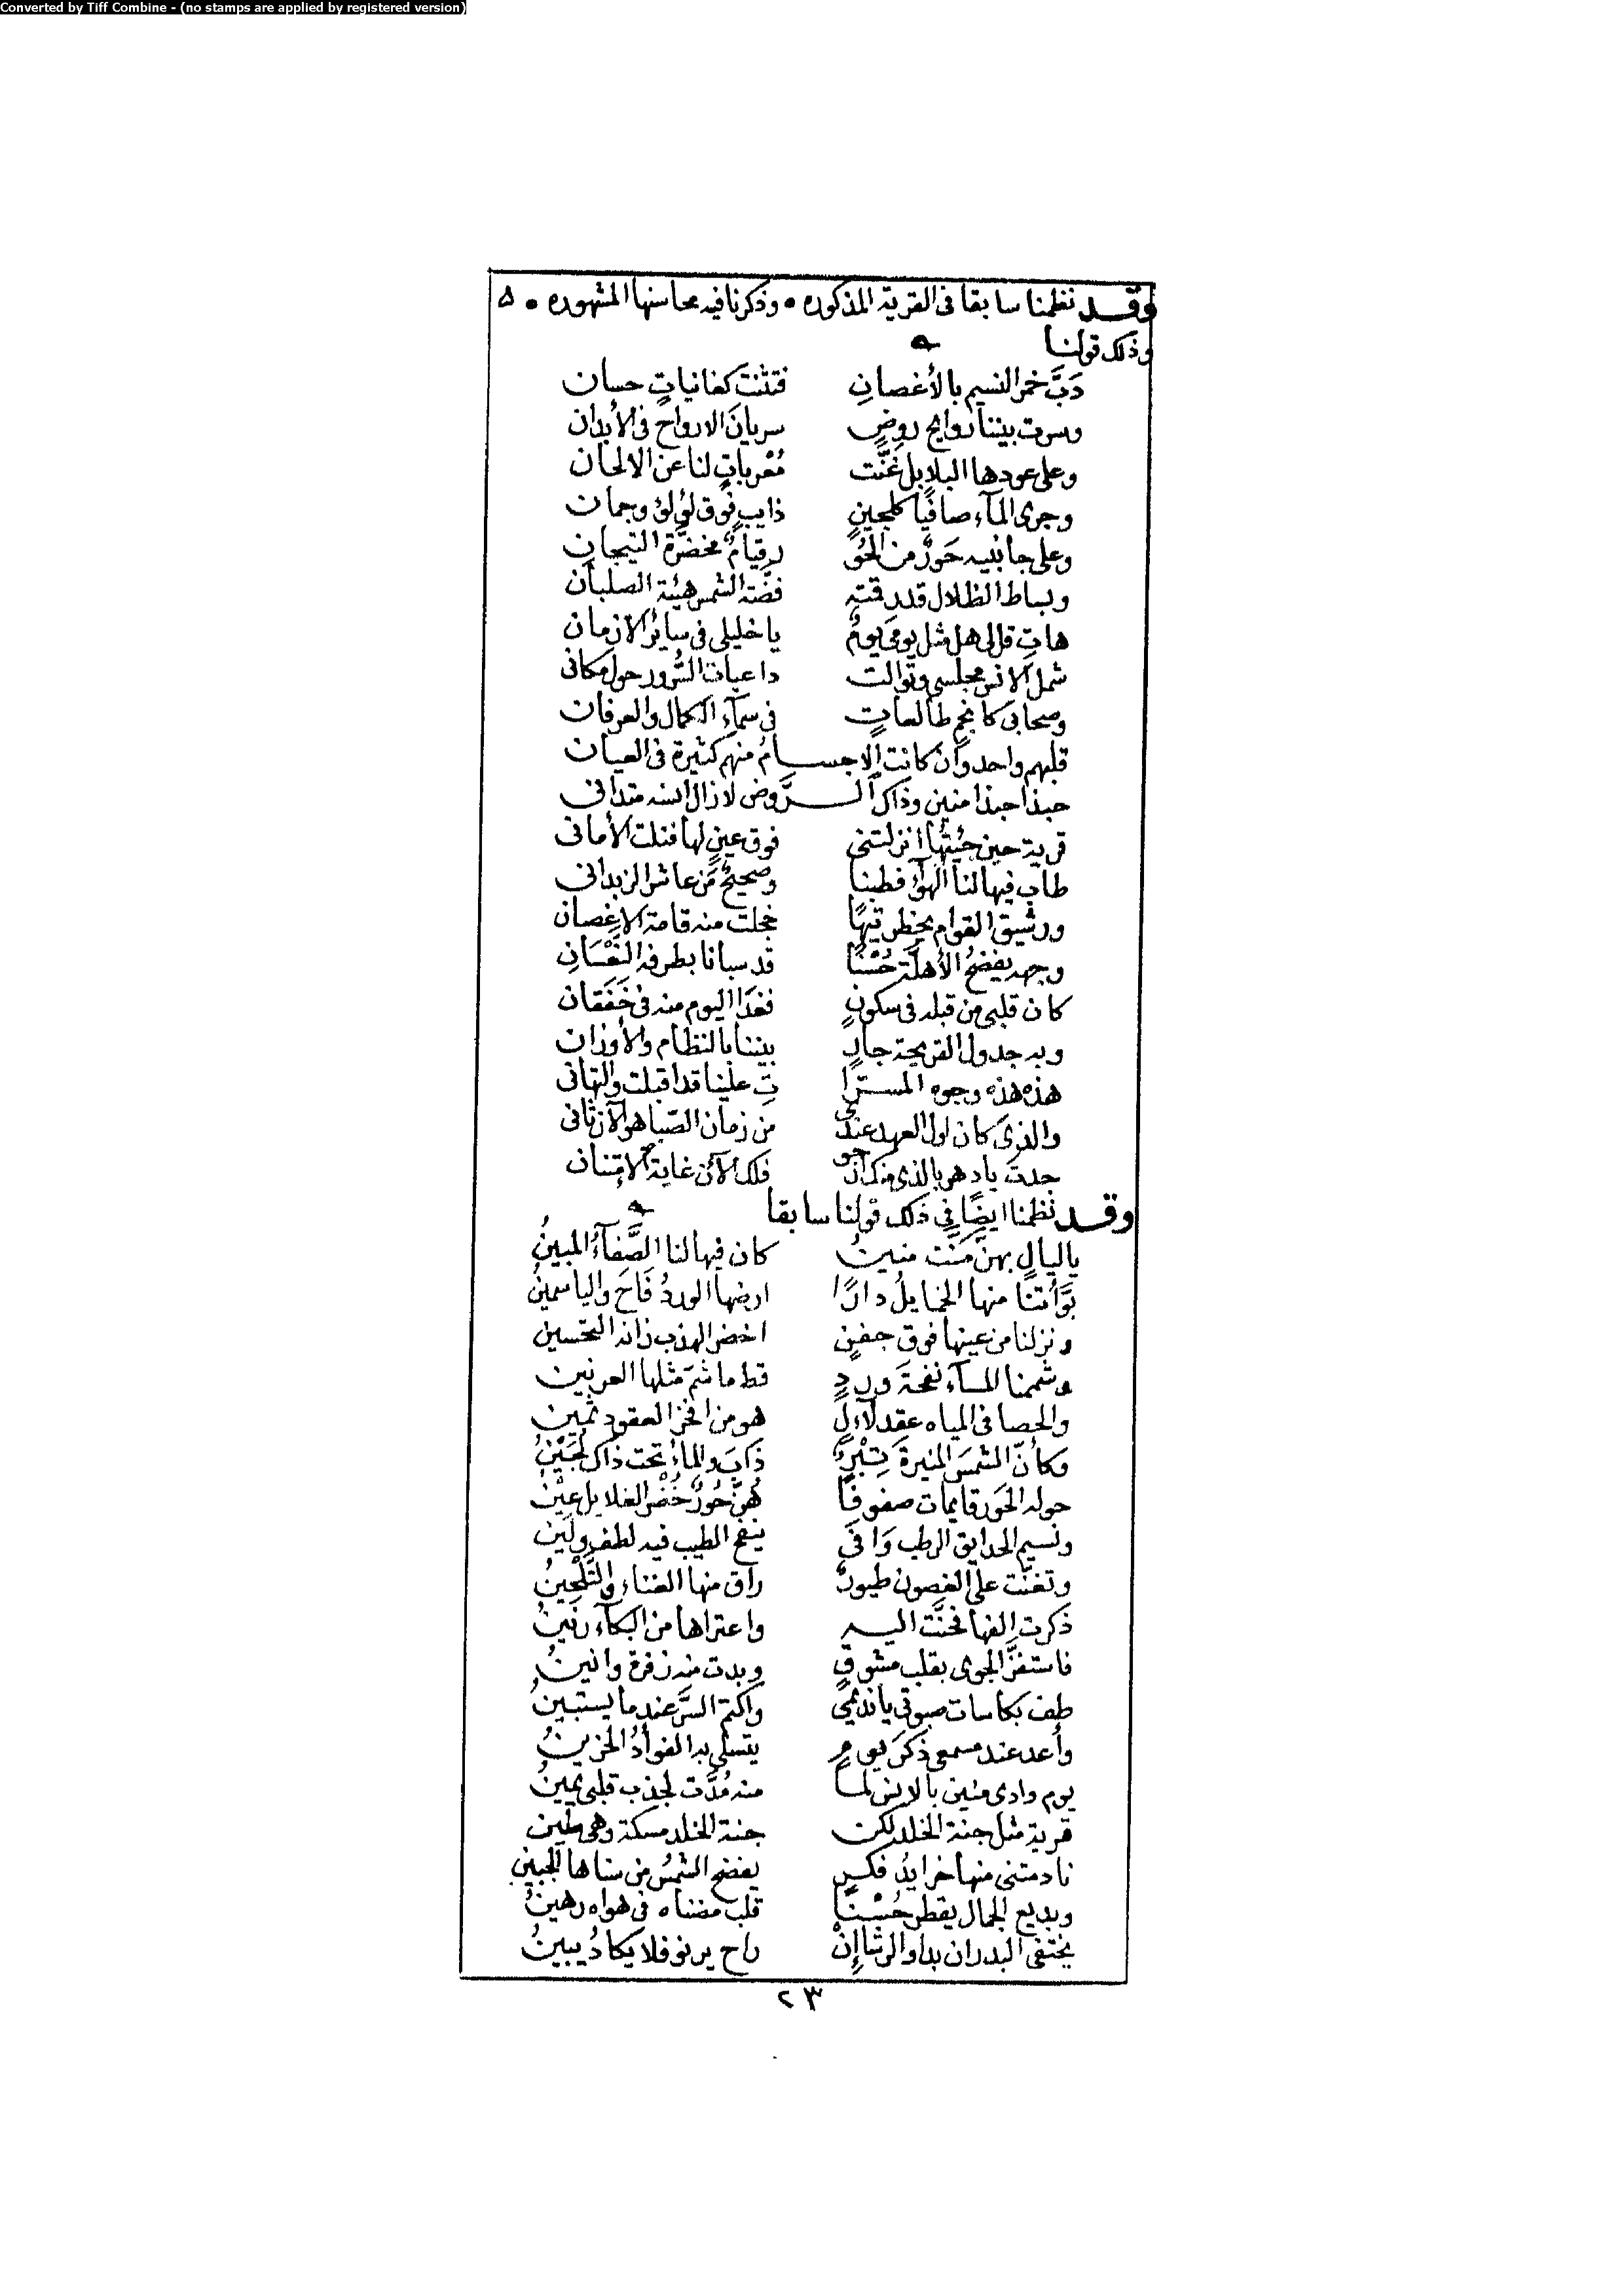 Converted by Tiff Combine - (no stamps are applied by registered version)
وقد نظمنا سابقا فى القرية المذكوره • وذكرنا فيه محاسنها المشهوره • ه
وذلك قولنا
دَبَّ خمر النسيم بالأغصانِ فتثنت كغانياتٍ حسان
وسرت بيننا روايح روضٍ سريانَ الارواح فى الأبدان
وعلى عودها البلابل غنَّت مُعْرباتٍ لنا عن الالحان
وجرى المآء صافيًا كلجينٍ ذايبٍ فوق لؤلؤ وجمان
وعلى جانبيه حَورٌ من الحُو رقيامٌ مخضرَّة التيجانِ
وبساط الظلال قد رقته فضَّة الشمس هيئة الصلبان
هاتِ قل لى هل مثل يومىَ يومٌ يا خليلى فى سائر الازمان
شمل الانس مجلسى وتوالت داعيات السُّرور حول مكانى
وصحابى كانجمٍ طالعاتٍ فى سمآء الكمال والعرفان
قلبهم واحد وان كانت الاجسامُ منهم كثيرة فى العيان
حبذا حبذا منين وذاك الرَّوض لا زال انسه متدانى
قرية حين جئتها انزلتنى فوق عينٍ لها فنلت الأمانى
طاب فيها لنا الهوآ فطبنا وصحيحٌ مَن عاشر الزبدانى
ورشيق القوام يخطر تيهًا خجلت منه قامة الاغصان
وجهه يفضحُ الأهلَّة حُسْنًا قد سبانا بطرفه النَّعْسَانِ
كان قلبى من قبله فى سكونٍ فغدَا اليوم منه فى خَفَقان
وبه جدول القريحة جارٍ بيننا بالنظام والأوزان
هذه هذه وجوه المسرّا تِ علينا قد اقبلت والتهانى
والذى كان اول العهد عندى من زمان الصّبا هو الآن ثانى
جدتَ يا دهر بالذى منك ارجو فلك الآن غاية الامتنان
وقد نظمنا ايضًا فى ذلك قولنا سابقا
يا ليالٍ بهن مَنَّت منينُ كان فيها لنا الصَّفآءُ المبينُ
بَوَّأتنا منها الخمايلُ دارًا ارضها الوردُ فَاحَ والياسمينُ
ونزلنا من عينها فوق جفنٍ اخضر الهذب زانه التحسين
وشممنا للمسآء نفحةَ وردٍ قط ما شمّ مثلها العرنين
والحصا فى المياه عقد لآلٍ هو من افخر العقود ثمين
وكأنّ الشمسَ المنيرةَ تِبْرٌ ذَابَ والمآء تحت ذاك لُجَيْنُ
حوله الحَور قايمات صفوفًا هُنَّ حُورٌ خُضْر الغلايل عِيْنُ
ونسيم الحدايق الرطب وَافى ينفح الطيب فيه لطف ولين
وتغنّت على الغصون طيورٌ راق منها الغناء والتَّلْحِينُ
ذكرت الفها فحنَّت اليه واعتراها من البكآء رنينُ
فاستفزَّ الجوى بقلب مشوقٍ وبدت منه زفرة وانينُ
طف بكاسات صبوتى يا نديمى واكتم السرَّ عندما يستبينُ
وأعد عند مسمعى ذكرَ يومٍ يتسلى به الفوأدُ الحزينُ
يوم وادى منين بالانس لما منه مُدَّت لجذب قلبى يمينُ
قرية مثل جنة الخلد لكن جنة الخلد مسكة وهى طين
نادمتنى منها خرايد فكرٍ يفضح الشمسُ من سناها الجبين
وبديع الجمال يقطر حُسْنًا قلب مضناه فى هواه رهينُ
يختفى البدر ان بدا والرشا إنْ راح يرنو فلا يكادُ يبينُ
٢٣